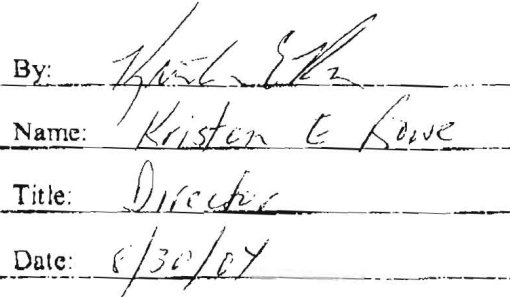 By:
Name: Kristen E Rowe
Title: Director
Date: 8/30/04